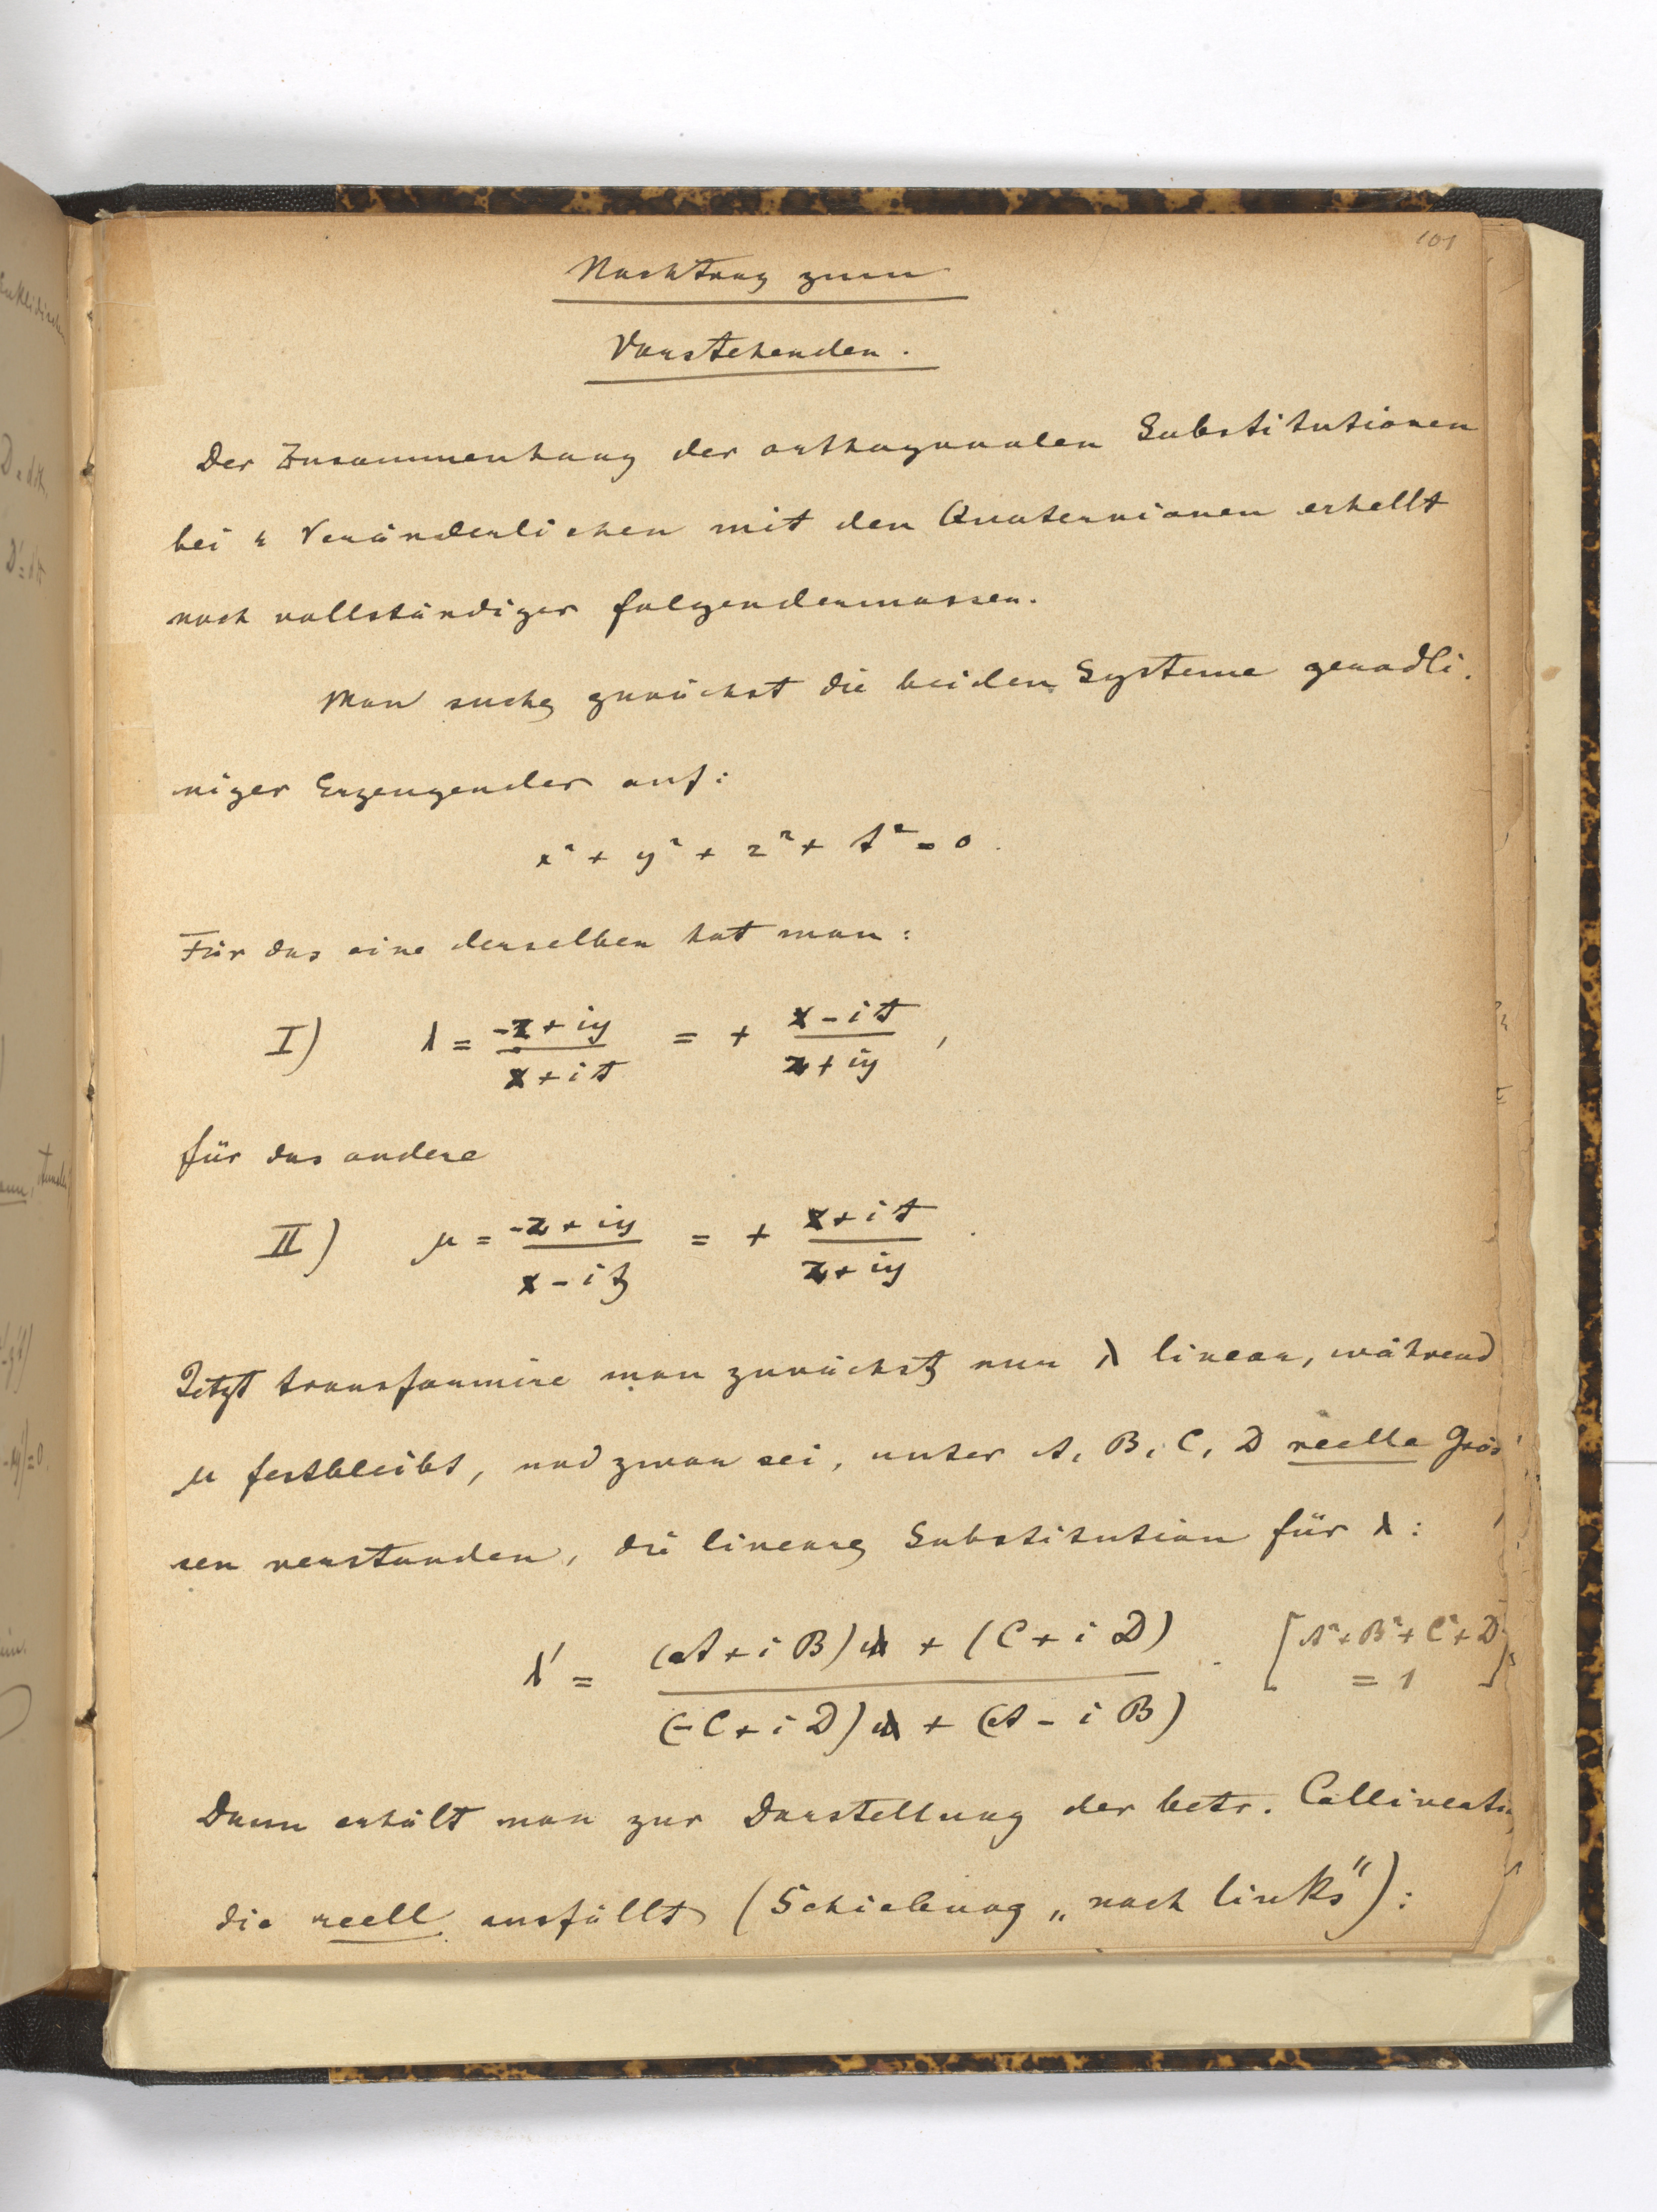 101
Nachtrag zum
Vorstehenden.
Der Zusammenhang der orthogonalen Substitutionen
bei 4 Veränderlichen mit den Quaternionen erhellt
noch vollständiger folgendermassen.
Man suche zunächst die beiden Systeme geradli-
niger Erzeugender auf:
x² + y² + z² + t² = 0.
Für das eine derselben hat man:
I) λ = (-z + iy)/(x + it) = + (x - it)/(z + iy),
für das andere
II) μ = (-z + iy)/(x - it) = + (x + it)/(z + iy).
Jetzt transformire man zunächst nur λ linear, während
μ festbleibt, und zwar sei, unter A, B, C, D reelle Grös-
sen verstanden, die lineare Substitution für λ:
λ' = ((A + iB)λ + (C + iD))/((-C + iD)λ + (A - iB)). [A² + B² + C² + D² = 1]
Dann erhält man zur Darstellung der betr.
die reell ausfällt (Schiebung „nach links"):